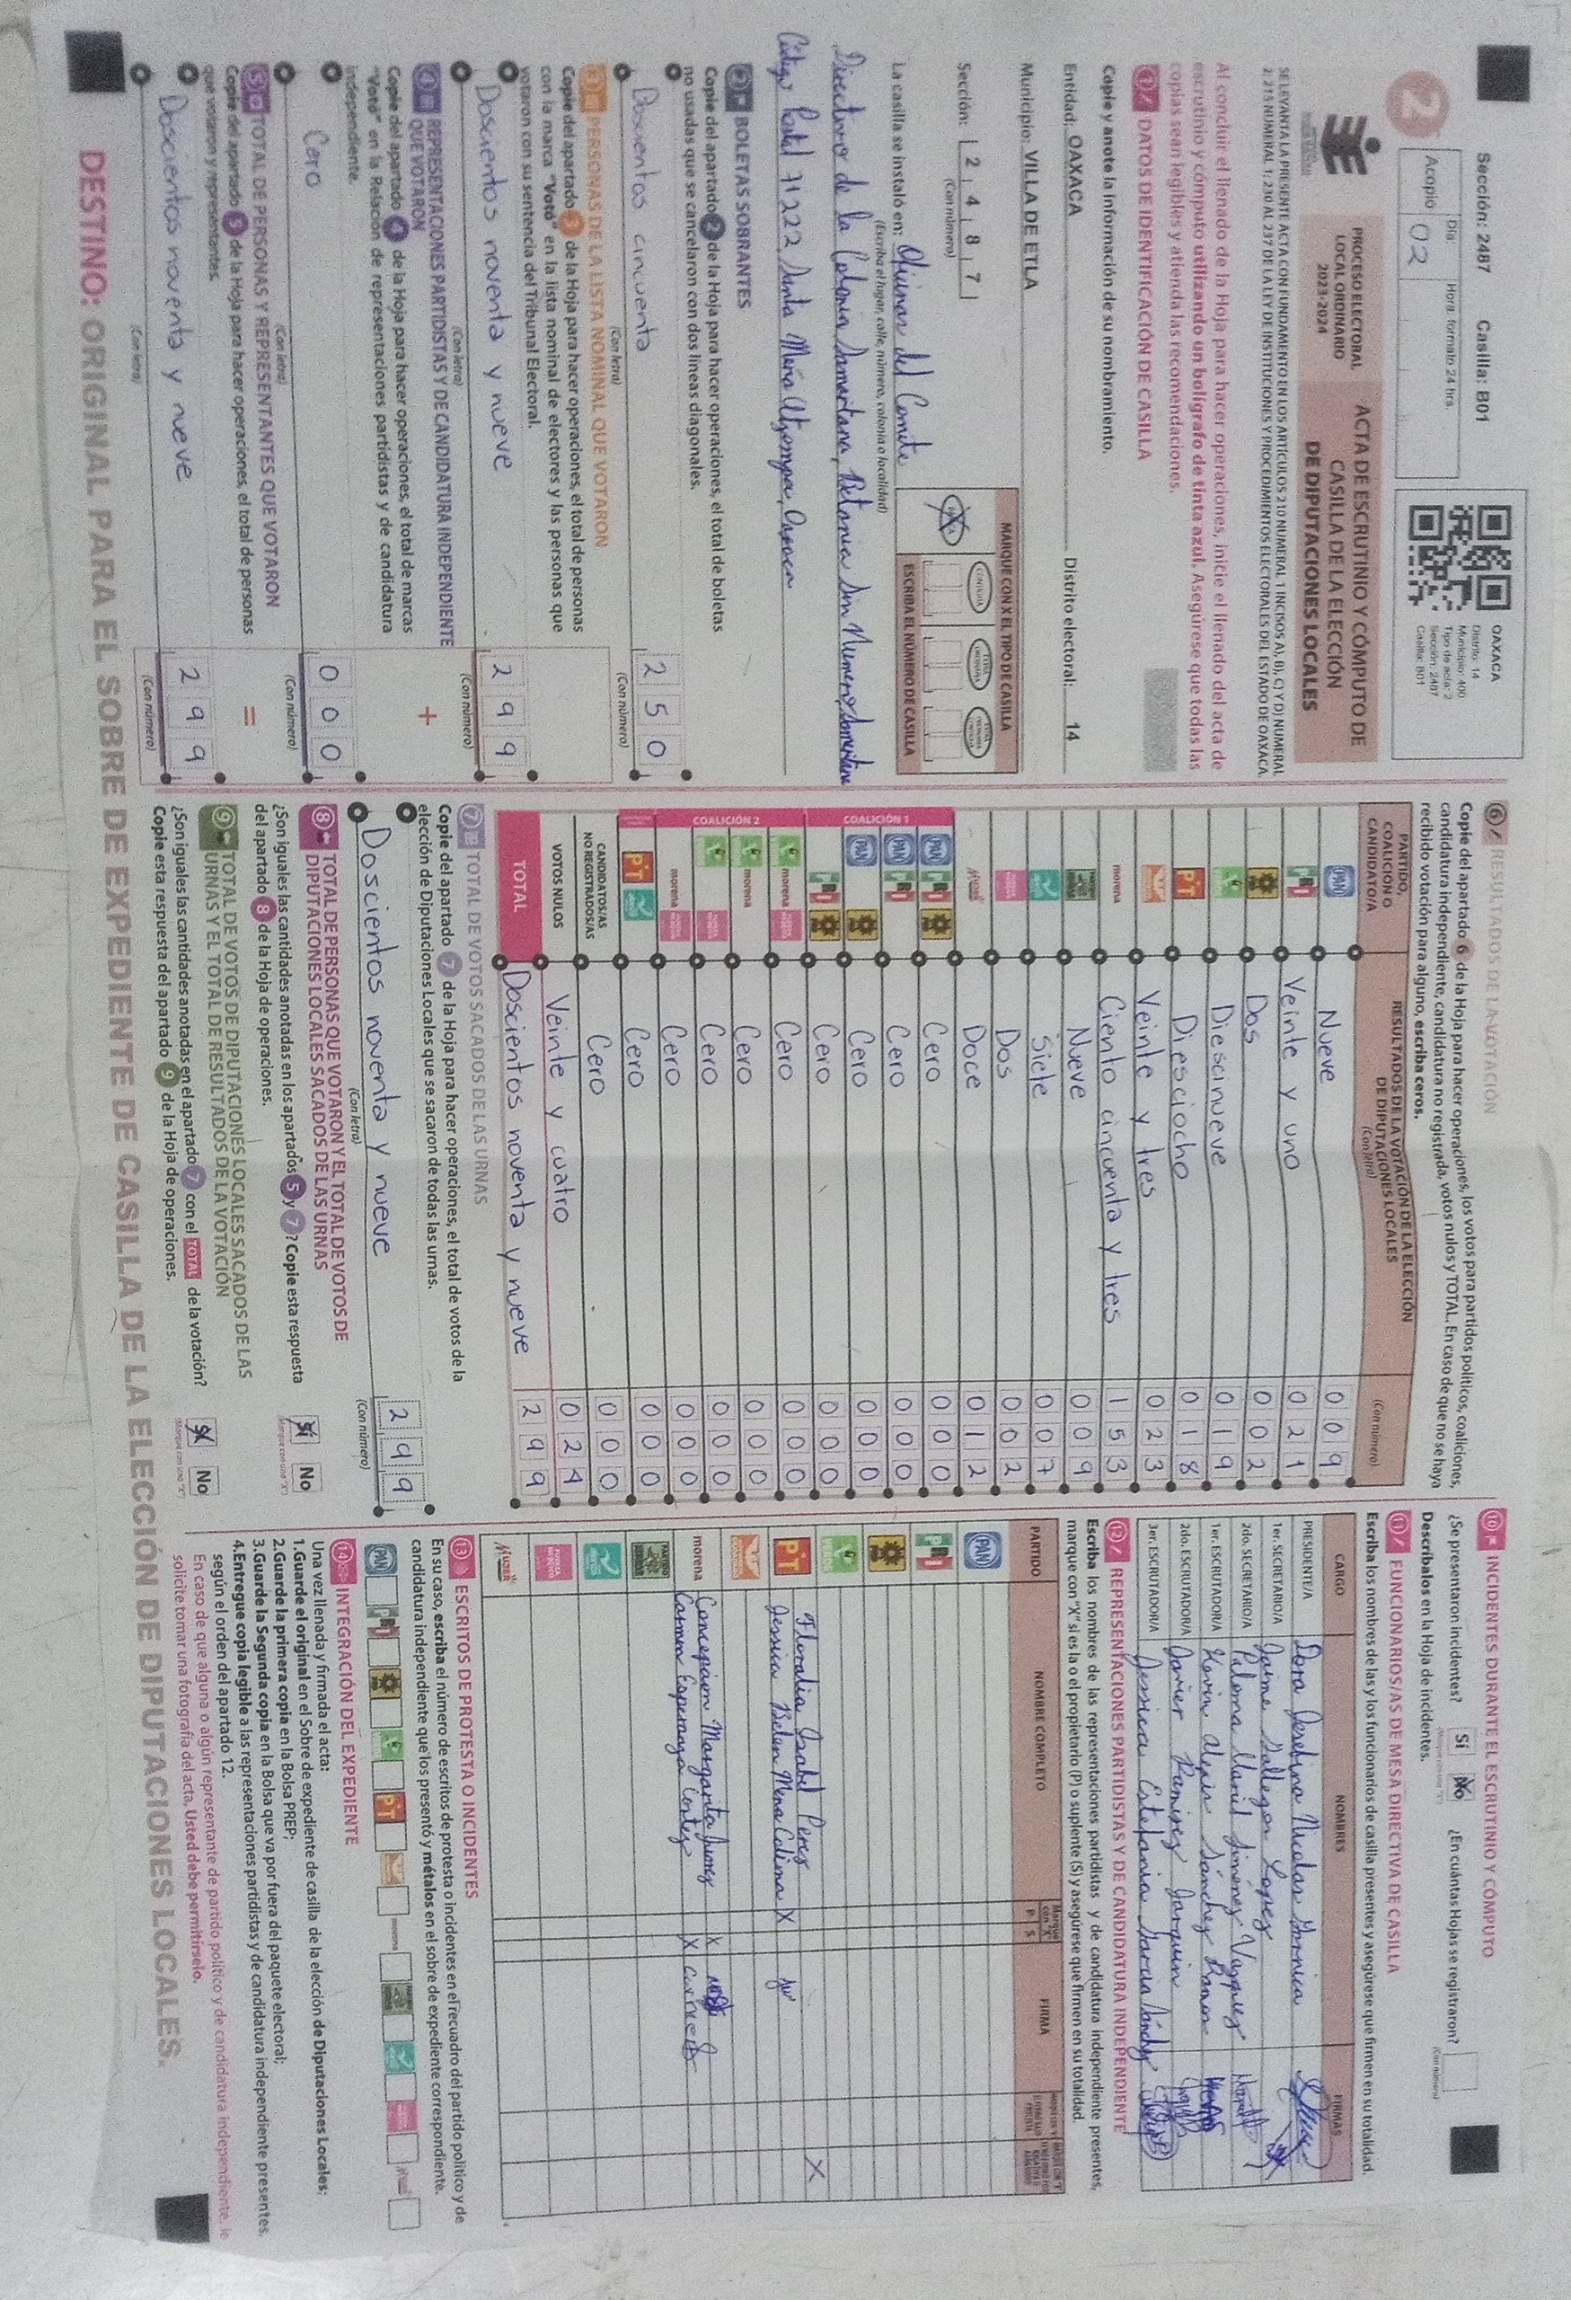 Sección: 2487 Casilla: B01
Día Hora: formato 24 hrs.
Acopio 02
2
OAXACA
Distrito: 14
Municipio: 400
Tipo de acta: 2
Sección: 2487
Casilla: B01
PROCESO ELECTORAL
LOCAL ORDINARIO
2023-2024
ACTA DE ESCRUTINIO Y CÓMPUTO DE
CASILLA DE LA ELECCIÓN
DE DIPUTACIONES LOCALES
SE LEVANTA LA PRESENTE ACTA CON FUNDAMENTO EN LOS ARTÍCULOS 210 NUMERAL 1 INCISOS A), B), C) Y D) NUMERAL
2; 215 NUMERAL 1; 230 AL 237 DE LA LEY DE INSTITUCIONES Y PROCEDIMIENTOS ELECTORALES DEL ESTADO DE OAXACA
Al concluir el llenado de la Hoja para hacer operaciones, inicie el llenado del acta de
escrutinio y cómputo utilizando un bolígrafo de tinta azul. Asegúrese que todas las
copias sean legibles y atienda las recomendaciones.
1 DATOS DE IDENTIFICACIÓN DE CASILLA
Copie y anote la información de su nombramiento.
Entidad: OAXACA Distrito electoral: 14
Municipio: VILLA DE ETLA
Sección: 2 4 8 7
(Con número)
MARQUE CON X EL TIPO DE CASILLA
ESCRIBA EL NÚMERO DE CASILLA
La casilla se instaló en: Oficinas del Comite
(Escriba el lugar, calle, número, colonia o localidad)
Directivo de la Colonia Samaritana, Betania Sin Numero, Samaritana
Código Postal 71222, Santa María Atzompa, Oaxaca
2 BOLETAS SOBRANTES
Copie del apartado 2 de la Hoja para hacer operaciones, el total de boletas
no usadas que se cancelaron con dos líneas diagonales.
Doscientos cincuenta 2 5 0
(Con letra) (Con número)
3 PERSONAS DE LA LISTA NOMINAL QUE VOTARON
Copie del apartado 3 de la Hoja para hacer operaciones, el total de personas
con la marca "Votó" en la lista nominal de electores y las personas que
votaron con su sentencia del Tribunal Electoral.
Doscientos noventa y nueve 2 9 9
(Con letra) (Con número)
4 REPRESENTACIONES PARTIDISTAS Y DE CANDIDATURA INDEPENDIENTE
QUE VOTARON
Copie del apartado 4 de la Hoja para hacer operaciones, el total de marcas
"Votó" en la Relación de representaciones partidistas y de candidatura
independiente.
+
Cero 0 0 0
(Con letra) (Con número)
5 TOTAL DE PERSONAS Y REPRESENTANTES QUE VOTARON
Copie del apartado 5 de la Hoja para hacer operaciones, el total de personas
que votaron y representantes.
=
Doscientos noventa y nueve 2 9 9
(Con letra) (Con número)
6 RESULTADOS DE LA VOTACIÓN
Copie del apartado 6 de la Hoja para hacer operaciones, los votos para partidos políticos, coaliciones,
candidatura independiente, candidatura no registrada, votos nulos y TOTAL. En caso de que no se haya
recibido votación para alguno, escriba ceros.
PARTIDO,
COALICIÓN O
CANDIDATO/A
RESULTADOS DE LA VOTACIÓN DE LA ELECCIÓN
DE DIPUTACIONES LOCALES
(Con letra) (Con número)
PAN Nueve 0 0 9
PRI Veinte y uno 0 2 1
Dos 0 0 2
Diescinueve 0 1 9
PT Diesciocho 0 1 8
Veinte y tres 0 2 3
morena Ciento cincuenta y tres 1 5 3
Nueve 0 0 9
Siete 0 0 7
Dos 0 0 2
Doce 0 1 2
COALICIÓN 1
PAN PRI Cero 0 0 0
PAN PRI Cero 0 0 0
PAN Cero 0 0 0
PRI Cero 0 0 0
COALICIÓN 2
morena Cero 0 0 0
morena Cero 0 0 0
Cero 0 0 0
morena Cero 0 0 0
PT Cero 0 0 0
CANDIDATOS/AS
NO REGISTRADOS/AS Cero 0 0 0
VOTOS NULOS Veinte y cuatro 0 2 4
TOTAL Doscientos noventa y nueve 2 9 9
7 TOTAL DE VOTOS SACADOS DE LAS URNAS
Copie del apartado 7 de la Hoja para hacer operaciones, el total de votos de la
elección de Diputaciones Locales que se sacaron de todas las urnas.
Doscientos noventa y nueve 2 9 9
(Con letra) (Con número)
8 TOTAL DE PERSONAS QUE VOTARON Y EL TOTAL DE VOTOS DE
DIPUTACIONES LOCALES SACADOS DE LAS URNAS
¿Son iguales las cantidades anotadas en los apartados 5 y 7? Copie esta respuesta
del apartado 8 de la Hoja de operaciones.
Sí No
9 TOTAL DE VOTOS DE DIPUTACIONES LOCALES SACADOS DE LAS
URNAS Y EL TOTAL DE RESULTADOS DE LA VOTACIÓN
¿Son iguales las cantidades anotadas en el apartado 7 con el TOTAL de la votación?
Copie esta respuesta del apartado 9 de la Hoja de operaciones.
Sí No
10 INCIDENTES DURANTE EL ESCRUTINIO Y CÓMPUTO
¿Se presentaron incidentes? Sí No ¿En cuántas Hojas se registraron?
(Con número)
Descríbalos en la Hoja de incidentes.
11 FUNCIONARIOS/AS DE MESA DIRECTIVA DE CASILLA
Escriba los nombres de las y los funcionarios de casilla presentes y asegúrese que firmen en su totalidad.
CARGO NOMBRES FIRMAS
PRESIDENTE/A Dora Josefina Nicolas Garnica
1er. SECRETARIO/A Jaime Gallegos Lopez
2do. SECRETARIO/A Paloma Nanid Jiménez Vazquez
1er. ESCRUTADOR/A Kevin Alexis Sánchez Ramos
2do. ESCRUTADOR/A Javier Ramirez Jarquin
3er. ESCRUTADOR/A Jessica Estefania Garcia Sánchez
12 REPRESENTACIONES PARTIDISTAS Y DE CANDIDATURA INDEPENDIENTE
Escriba los nombres de las representaciones partidistas y de candidatura independiente presentes,
marque con "X" si es la o el propietario (P) o suplente (S) y asegúrese que firmen en su totalidad.
PARTIDO NOMBRE COMPLETO Marque con "X" P S FIRMA
PAN
PRI
Floralia Isabel Perez X
PT Jessica Belen Mena Colima X
morena Concepcion Margarita Juarez X
Carmen Esperanza Cortez X
13 ESCRITOS DE PROTESTA O INCIDENTES
En su caso, escriba el número de escritos de protesta o incidentes en el recuadro del partido político y de
candidatura independiente que los presentó y métalos en el sobre de expediente correspondiente.
PAN PRI PT morena
14 INTEGRACIÓN DEL EXPEDIENTE
Una vez llenada y firmada el acta:
1.Guarde el original en el Sobre de expediente de casilla de la elección de Diputaciones Locales;
2.Guarde la primera copia en la Bolsa PREP;
3.Guarde la Segunda copia en la Bolsa que va por fuera del paquete electoral;
4.Entregue copia legible a las representaciones partidistas y de candidatura independiente presentes,
según el orden del apartado 12.
En caso de que alguna o algún representante de partido político y de candidatura independiente, le
solicite tomar una fotografía del acta, Usted debe permitírselo.
DESTINO: ORIGINAL PARA EL SOBRE DE EXPEDIENTE DE CASILLA DE LA ELECCIÓN DE DIPUTACIONES LOCALES.